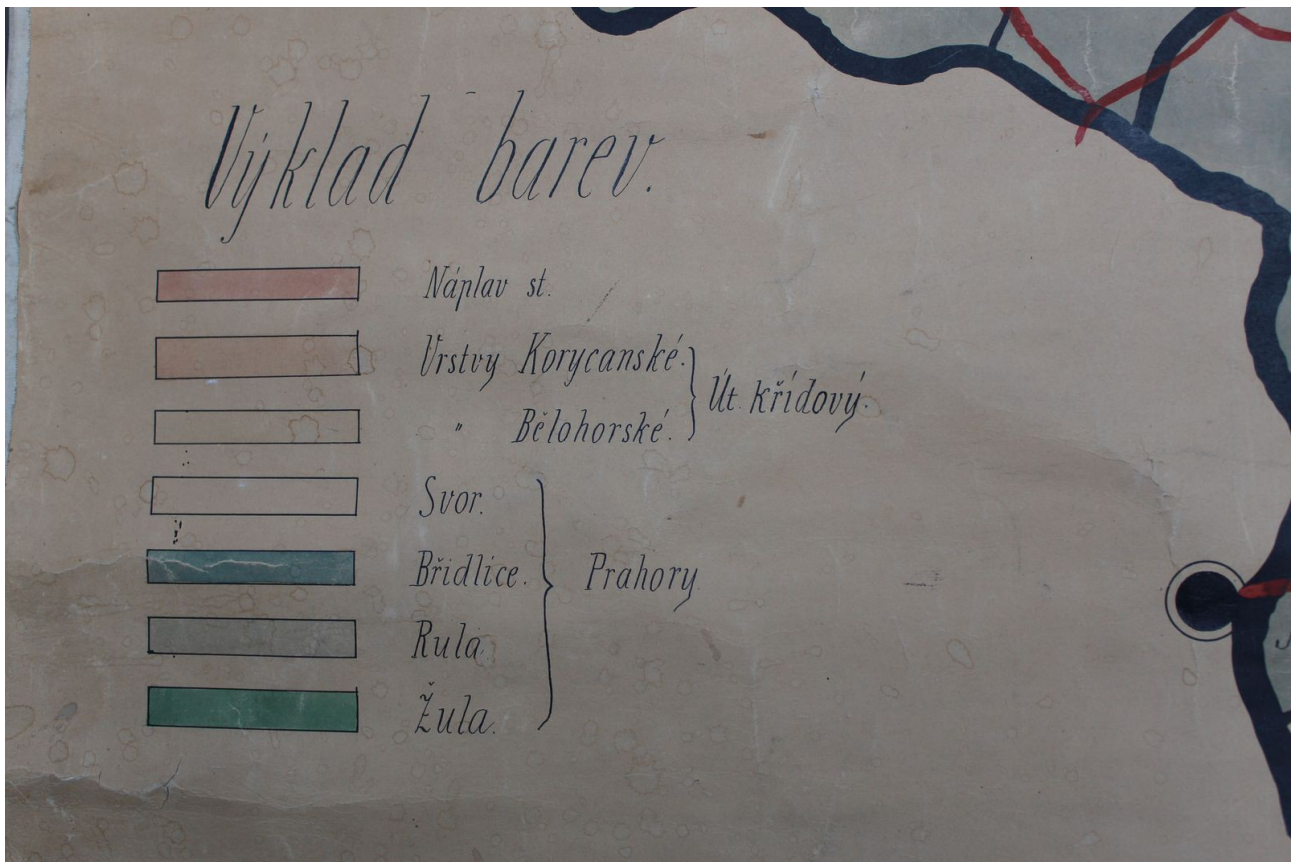 Výklad barev.
Náplav st.
Vrstvy Korycanské.
" Bělohorské.
Út. křídový.
Svor.
Břidlice.
Rula
Žula.
Prahory